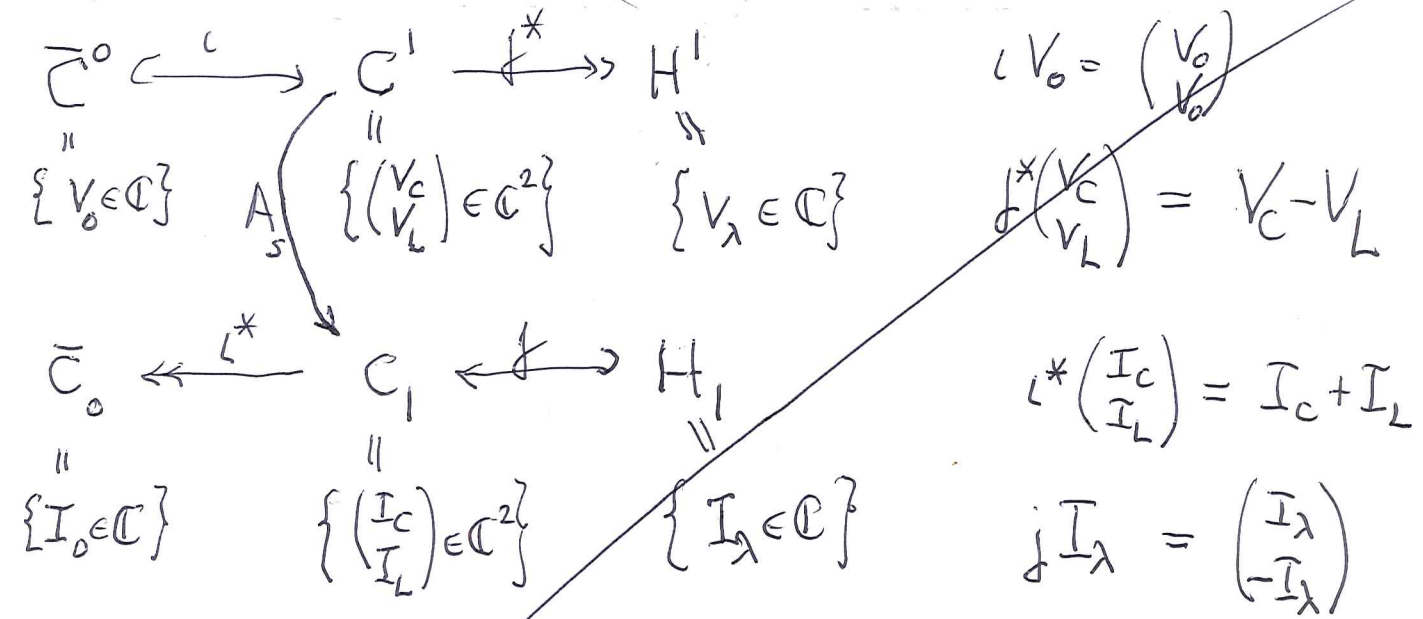 C̄⁰ ↪ᶥ C¹ —j*↠ H¹    ι V₀ = (V₀ V₀)
" " "
{V₀ ∈ ℂ} A_s {(V_C V_L) ∈ ℂ²} {V_λ ∈ ℂ}    j*(V_C V_L) = V_C − V_L
C̄₀ ↞ι* C₁ ←j↩ H₁    ι*(I_C I_L) = I_C + I_L
" " "
{I₀ ∈ ℂ} {(I_C I_L) ∈ ℂ²} {I_λ ∈ ℂ}    j I_λ = (I_λ −I_λ)